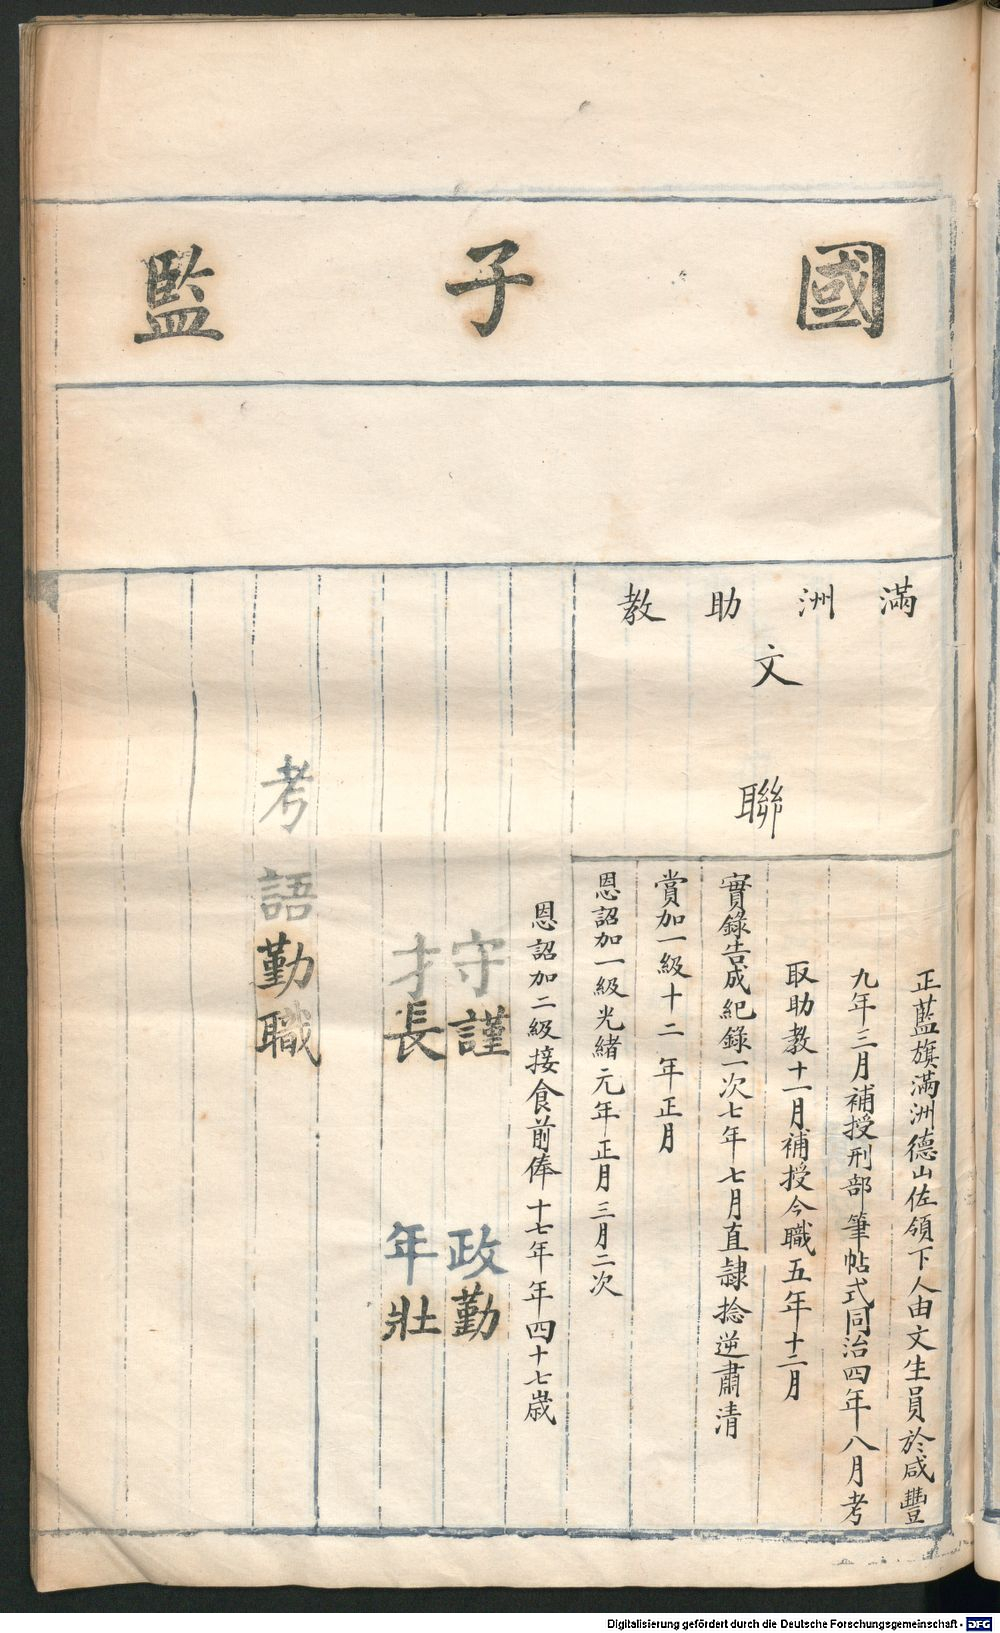 國子監
滿洲助教
文聯
正藍旗滿洲德山佐領下人由文生員於咸豐
九年三月補授刑部筆帖式同治四年八月考
取助教十一月補授今職五年十二月
實錄告成紀錄一次七年七月直隸捻逆肅清
賞加一級十二年正月
恩詔加一級光緒元年正月三月二次
恩詔加二級接食前俸十七年年四十七歲
守謹 政勤
才長 年壯
考語勤職
Digitalisierung gefördert durch die Deutsche Forschungsgemeinschaft - DFG